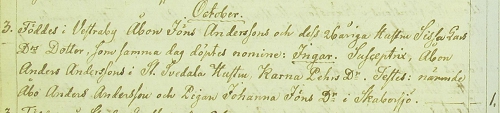 October.
3. Föddes i Westraby Åbon Jöns Anderssons och dess 26åriga Hustru Sissa Lars
Drs Dotter, som samma dag döptes nomine: Ingar. Susceptrix, Åbon
Anders Anderssons i St. Svedala Hustru, Karna Pehrs Dr. Testes: närvarande
Åbo Anders Andersson och Pigan Johanna Jöns Dr i Skabersjö. 1.